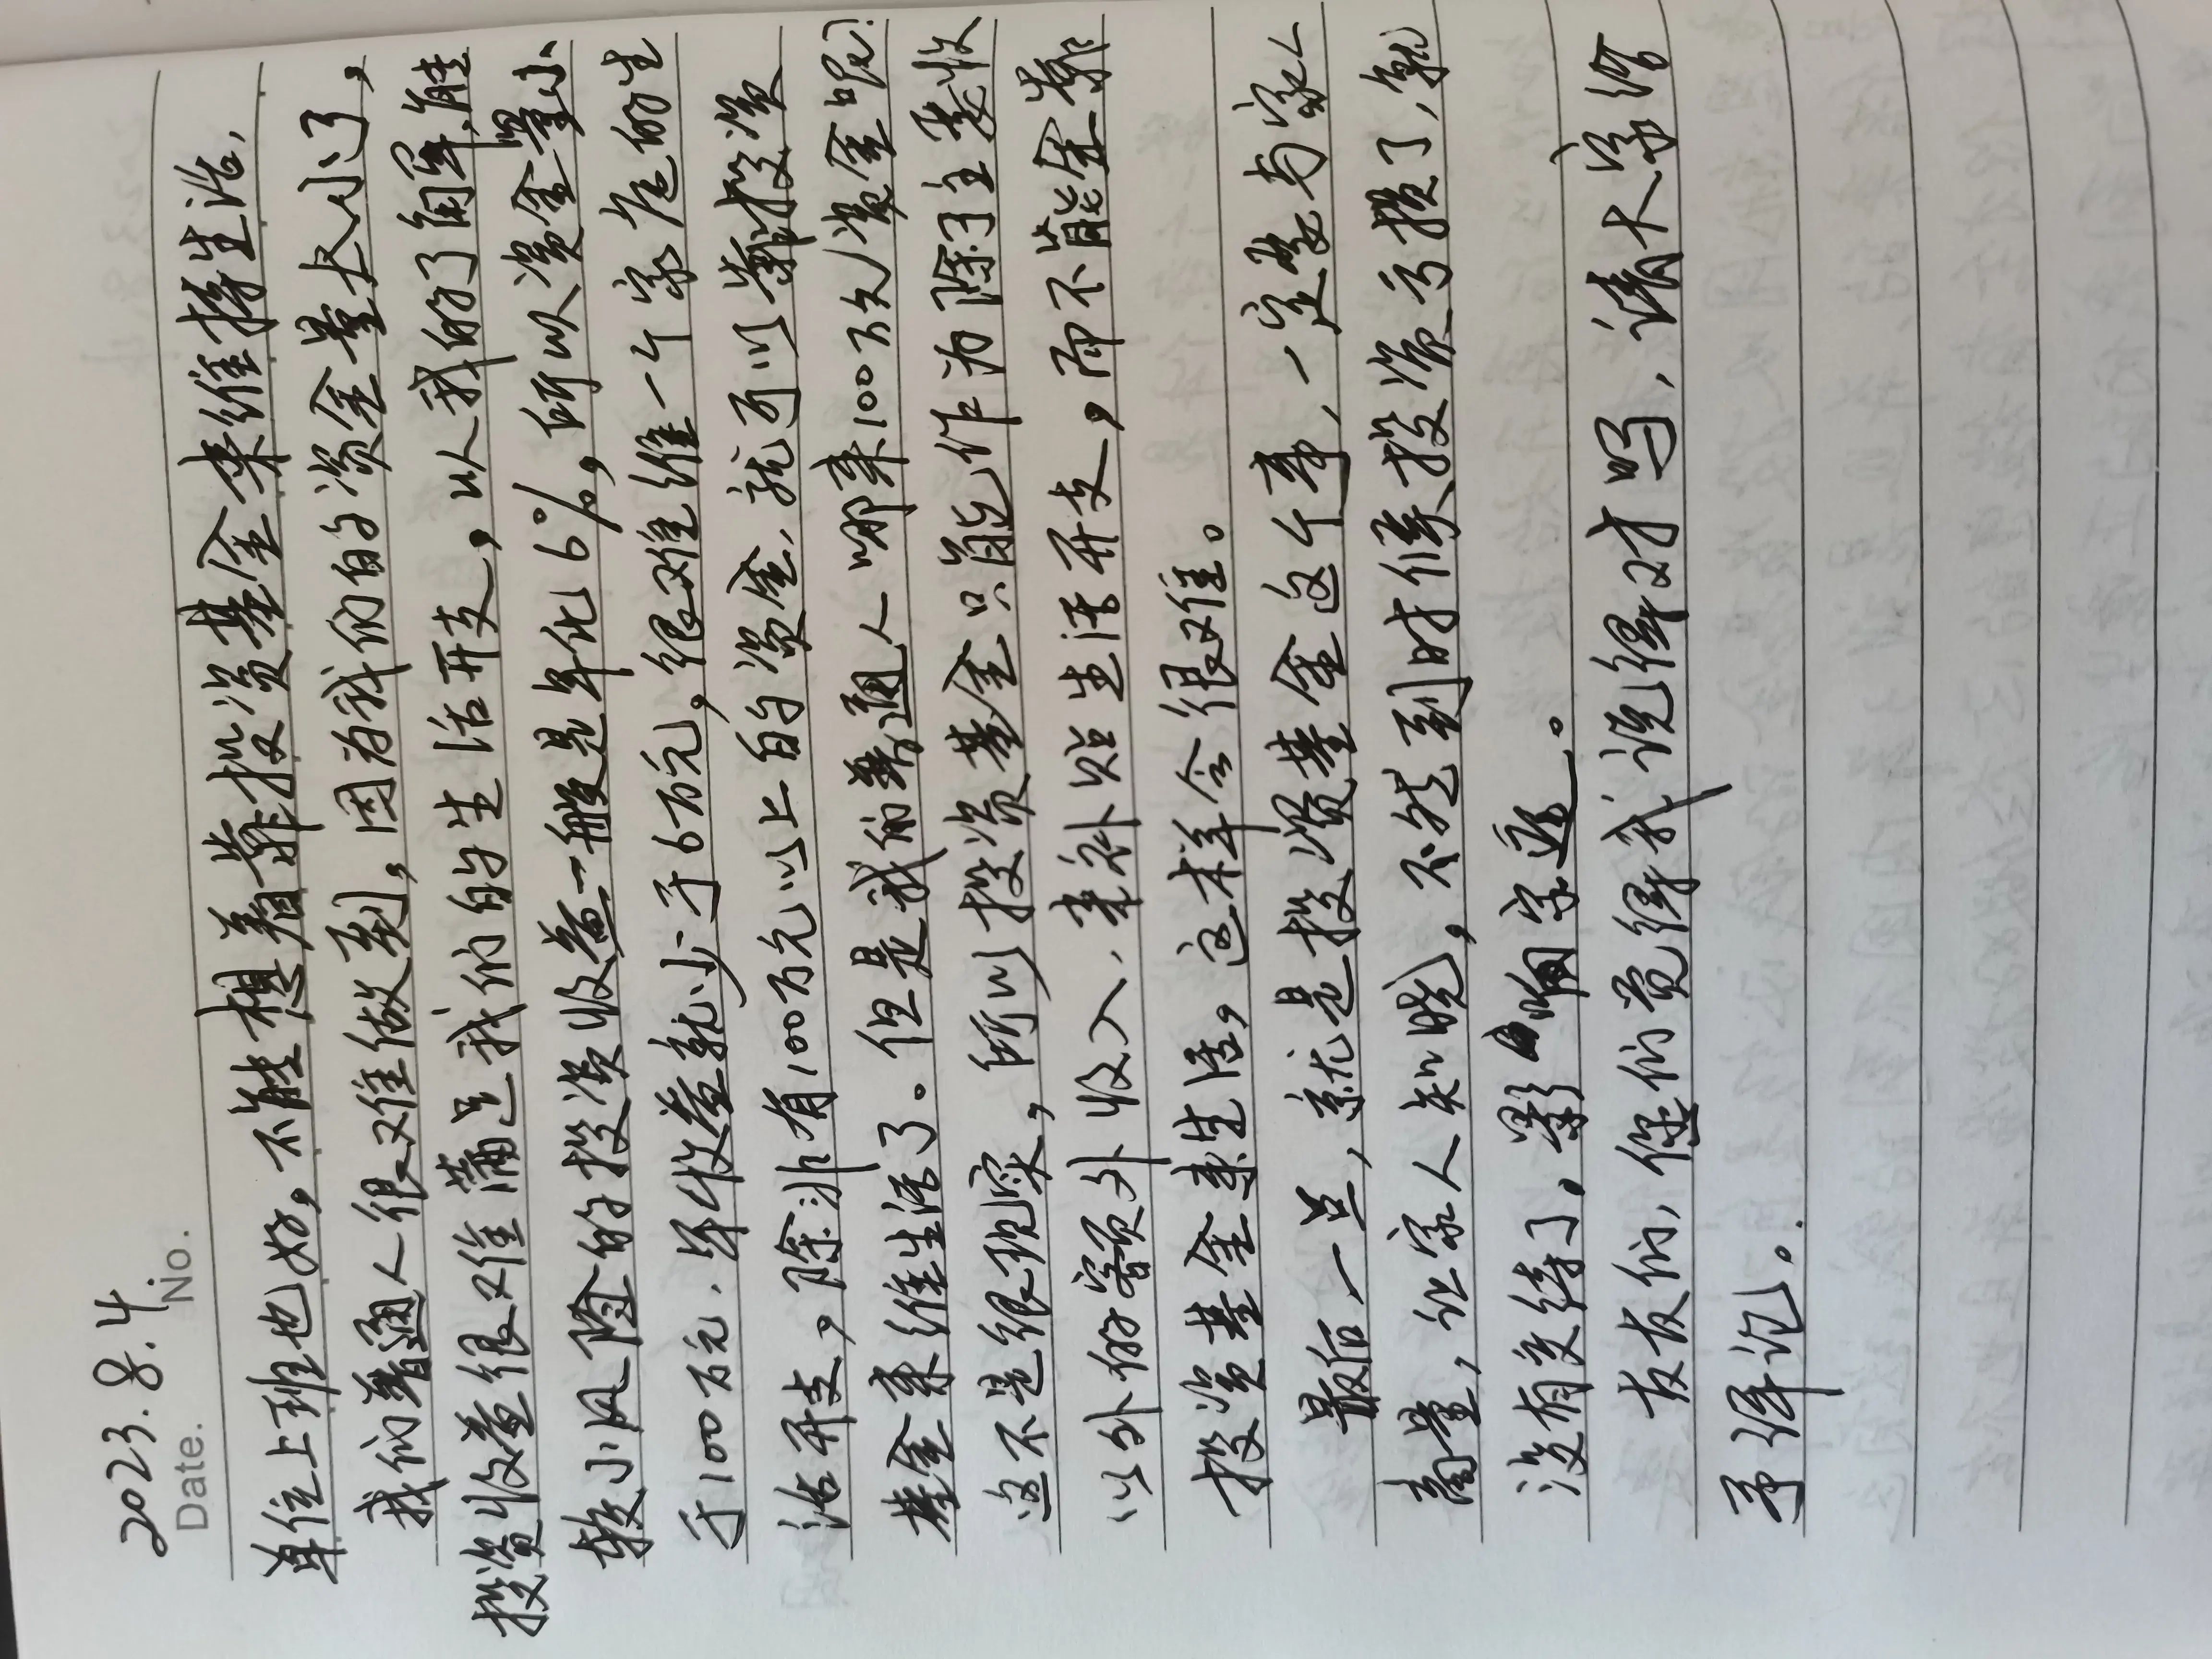 2023.8.4
Date. No.
单位上班也好。不能想着靠投资基金来维持生活,
我们普通人很难做到。因为我们的资金量太小了,
投资收益很难满足我们的生活开支,以我的了解,能
较小风险的投资收益一般是年化6%,所以资金量小
于100万元.年收益就少于6万元,很难维一个家庭的生
活开支。除非有100万元以上的资金,就可以靠投资
基金来维生活了。但是我们普通人哪来100万元资金呢?
这不是很现实,所以投资基金只能作为除了主要收
以外的额外收入,来补贴生活开支,而不能全靠
投资基金来生活。这样会很难。
最后一点,就是投资基金这个事,一定要与家人
商量,让家人知晓,不然到时候投资亏损了,就
没有交待了。影响家庭。
友友们,你们觉得我说得对吗,请大家给
予评论。.